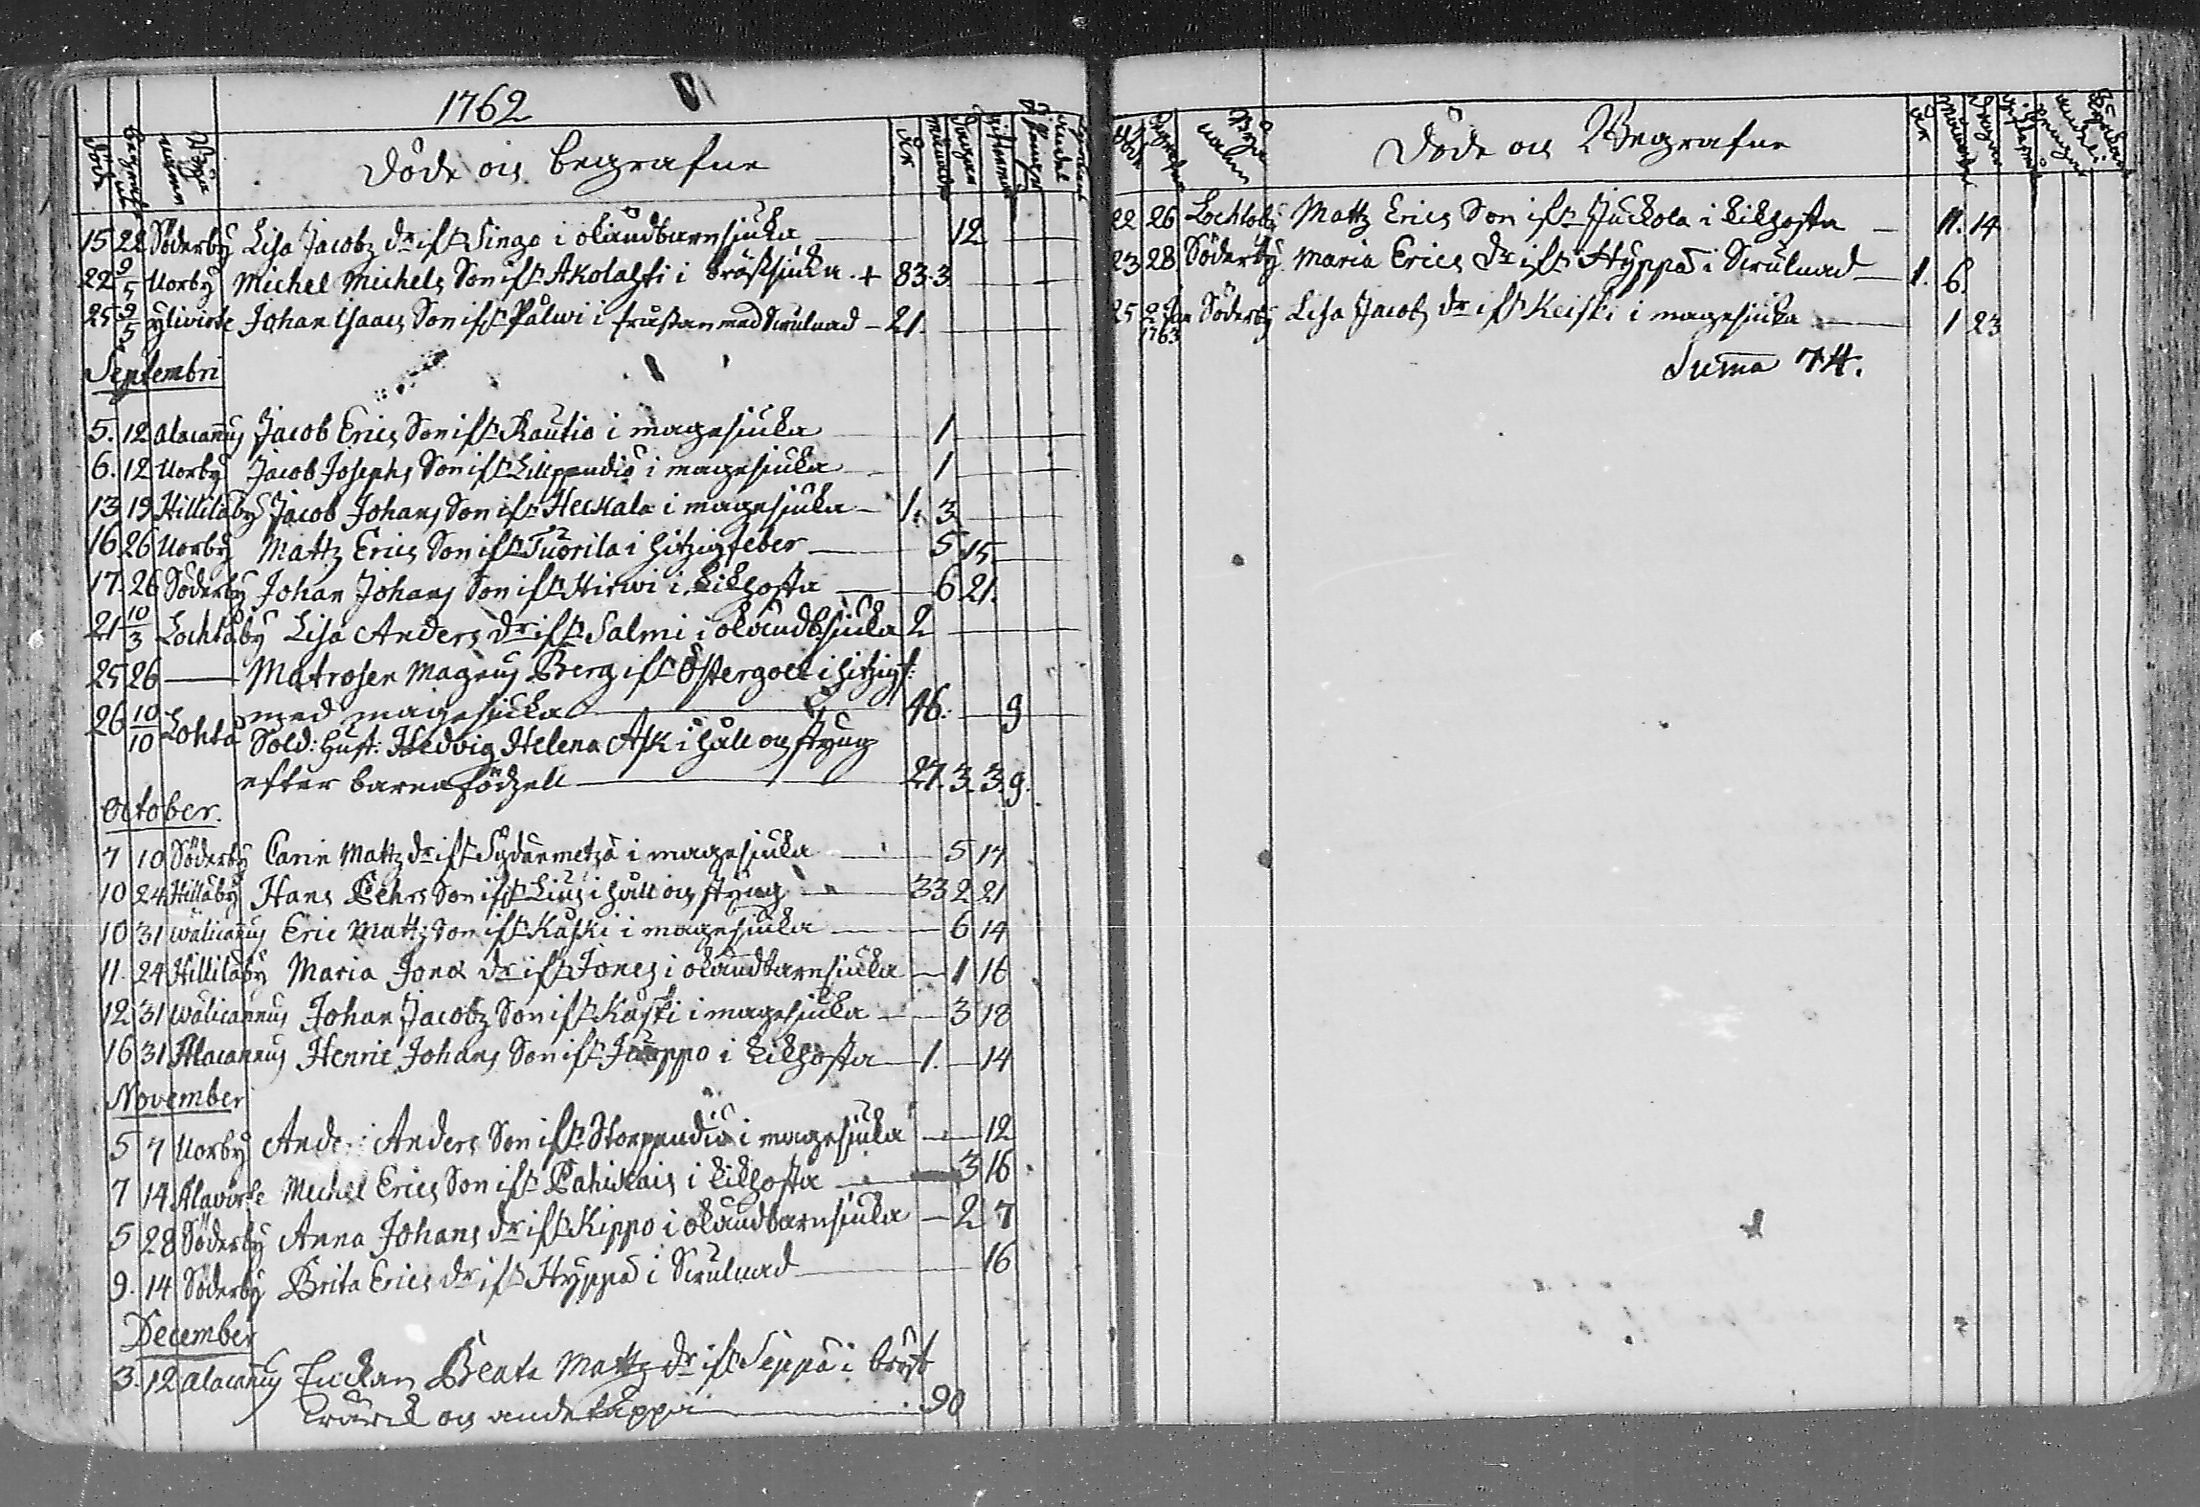 1762
Döde
Begrafne
Byia namn
Döde och begrafne
Åhr
Månader
Dagar
15 22 Söderby Lisa Jacobz dr ifr Singo i okändbarnsiuka 12
22 9/5 Uorby Michel Michels Son ifr Akolahti i bröstsiuka + 83. 3
25 9/5 Yliwirre Johan Isaacs Son ifr Palwi i frustan med Swulnad 21.
Septembri
5. 12 Alacannus Jacob Erics Son ifr Rautio i magesiuka 1
6. 12 Uorby Jacob Josephs Son ifr Lillpundio i magesiuka 1
13 19 Hilliläby Jacob Johans Son ifr Heckala i magesiuka 1. 3
16 26 Uorby Mattz Erics Son ifr Tuorila i hitzigfeber 5 15
17. 26 Söderby Johan Johans Son ifr Hirwi i kikhosta 6 21.
21 10/3 Lochtåby Lisa Anders dr ifr Salmi i okändbsiuka 2
25 26 Matrosen Magnus Berg ifr Östergötl i hitzigf:
med magesiuka 46. 9
26 10/10 Lohtå Sold: hust: Hedvig Helena Ask i håll och styng
efter barnsfödzell 27. 3. 3 9.
October.
7 10 Söderby Carin Mattz dr ifr Sydänmetzä i magesiuka 5 14
10 24 Hilläby Hans Pehrs Son ifr Lius i håll och styng 33 2 21
10 31 Wälicannus Eric Mattz Son ifr Kaski i magesiuka 6 14
11. 24 Hilliläby Maria Jonæ dr ifr Jones i okändbarnsiuka 1 16
12 31 Wälicannus Johan Jacobz Son ifr Kaski i magesiuka 3 18
16 31 Alacannus Henric Johans Son ifr Juoppo i kikhosta 1. 14
November
5 7 Uorby Anders Anders Son ifr Storpundio i magesiuka 12
7 14 Alawirre Michel Erics Son ifr Pahikais i kikhosta 3 16
5 28 Söderby Anna Johans dr ifr Kippo i okändbarnsiuka 2 7
9. 14 Söderby Brita Erics dr ifr Hyppä i Swulnad 16
December
3. 12 Alacannus Enckan Beata Mattz dr ifr Seppä i bröst
wärck och andetäppa 90
Döde
Begrafne
Byia namn
Döde och Begrafne
Åhr
Månader
Dagar
22 26 Lochtoby Mattz Erics Son ifr Juckola i kikhosta 11. 14
23 28 Söderby Maria Erics dr ifr Hyppä i Swulnad 1. 6.
25 2 Jan 1763 Söderby Lisa Jacobz dr ifr Keiski i magesiuka 1 23
Suma 74.